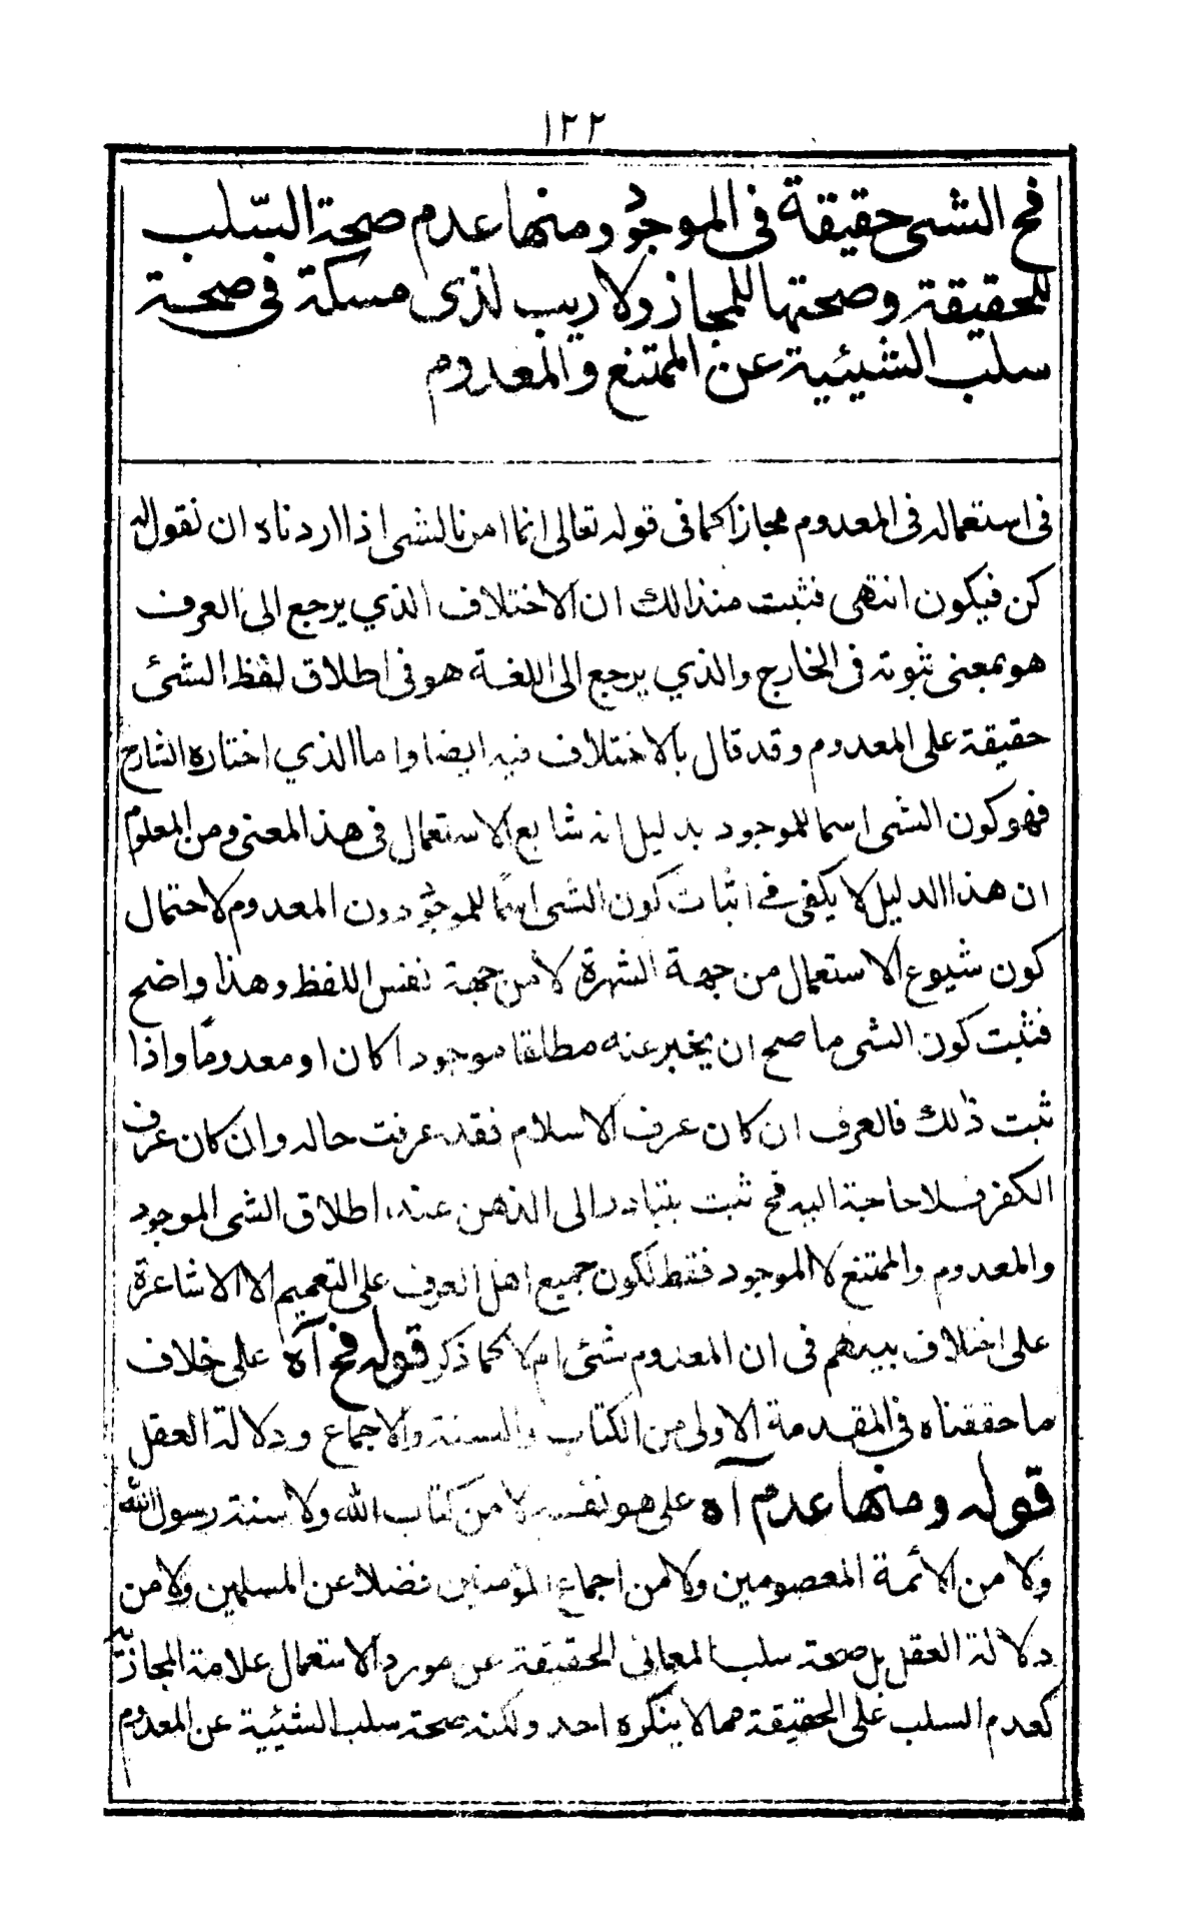 ١٢٢
فح الشئ حقيقة فى الموجود ومنها عدم صحة السّلب
للحقيقة وصحتها للمجاز ولا ريب لذى مسكة فى صحة
سلب الشيئية عن الممتنع والمعدوم
فى استعماله فى المعدوم مجازا كما فى قوله تعالى انما امرنا لشئ اذا اردناه ان نقول له
كن فيكون انتهى فثبت منذالك ان الاختلاف الذي يرجع الى العرف
هو بمعنى ثبوته فى الخارج والذي يرجع الى اللغة هو فى اطلاق لفظ الشئ
حقيقة على المعدوم وقد قال بالاختلاف فيه ايضا واما الذي اختاره الشارح
فهو كون الشئ اسما للموجود بدليل انه شايع الاستعمال فى هذا المعنى ومن المعلوم
ان هذا الدليل لا يكفى فے اثبات كون الشئ اسمًا للموجود دون المعدوم لاحتمال
كون شيوع الاستعمال من جهة الشهرة لا من جهة نفس اللفظ وهذا واضح
فثبت كون الشئ ما صح ان يخبر عنه مطلقا موجودا كان او معدومًا واذا
ثبت ذلك فالعرف ان كان عرف الاسلام فقد عرفت حاله وان كان عرف
الكفر فلا حاجة اليه فح ثبت بتبادر الى الذهن عند اطلاق الشئ الموجود
والمعدوم والممتنع لا الموجود فقط لكون جميع اهل العرف على التعميم الا الاشاعرة
على اختلاف بينهم فى ان المعدوم شئ ام لا كما ذكر قوله فح آه على خلاف
ما حققناه فى المقدمة الاولى من الكتاب والسنة والاجماع ودلالة العقل
قوله ومنها عدم آه على هو نفسه لا من كتاب الله ولا سنة رسول الله
ولا من الأئمة المعصومين ولا من اجماع المؤمنين فضلا عن المسلمين ولا من
دلالة العقل بل صحة سلب المعانى الحقيقة عن مورد الاستعمال علامة المجازية
كعدم السلب على الحقيقة مما لا ينكره احد ولكنه صحة سلب الشيئية عن المعدوم